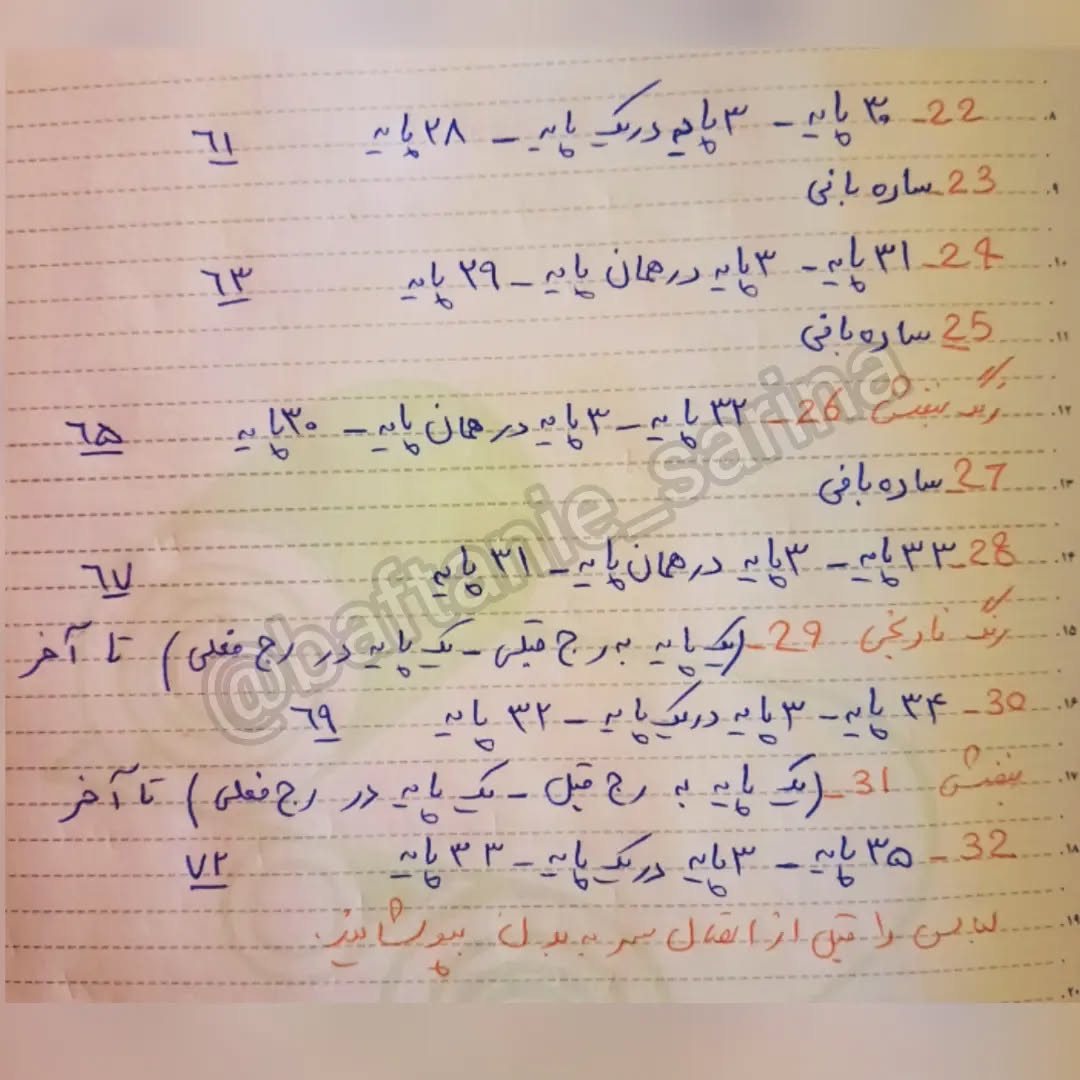 22- ۳۰ پایه - ۳ پایه در یک پایه - ۲۸ پایه ۶۱
23- ساده بافی
24- ۳۱ پایه - ۳ پایه در همان پایه - ۲۹ پایه ۶۳
25 ساده بافی
رنگ بنفش 26- ۳۲ پایه - ۳ پایه در همان پایه - ۳۰ پایه ۶۵
27- ساده بافی
28- ۳۳ پایه - ۳ پایه در همان پایه - ۳۱ پایه ۶۷
رنگ نارنجی 29- (یک پایه به رج قبلی - یک پایه در رج فعلی) تا آخر
30- ۳۴ پایه - ۳ پایه در یک پایه - ۳۲ پایه ۶۹
بنفش 31- (یک پایه به رج قبل - یک پایه در رج فعلی) تا آخر
32- ۳۵ پایه - ۳ پایه در یک پایه - ۳۳ پایه ۷۲
لباس را قبل از اتصال سر به بدن بپوشانید.
@baftanie_sarina